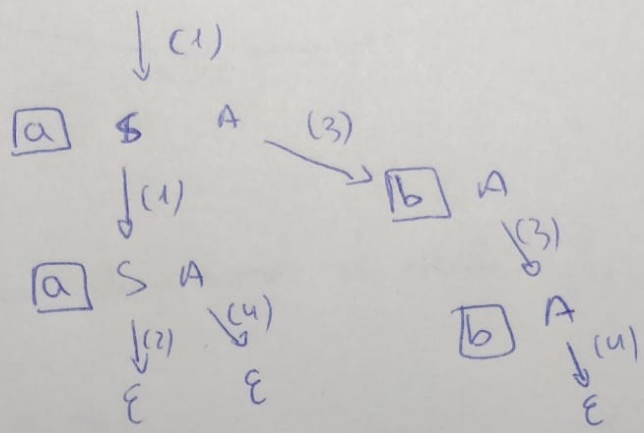 (1)
a S A (3)
(1) b A
(3)
a S A
(2) (4) b A (4)
ε ε
ε